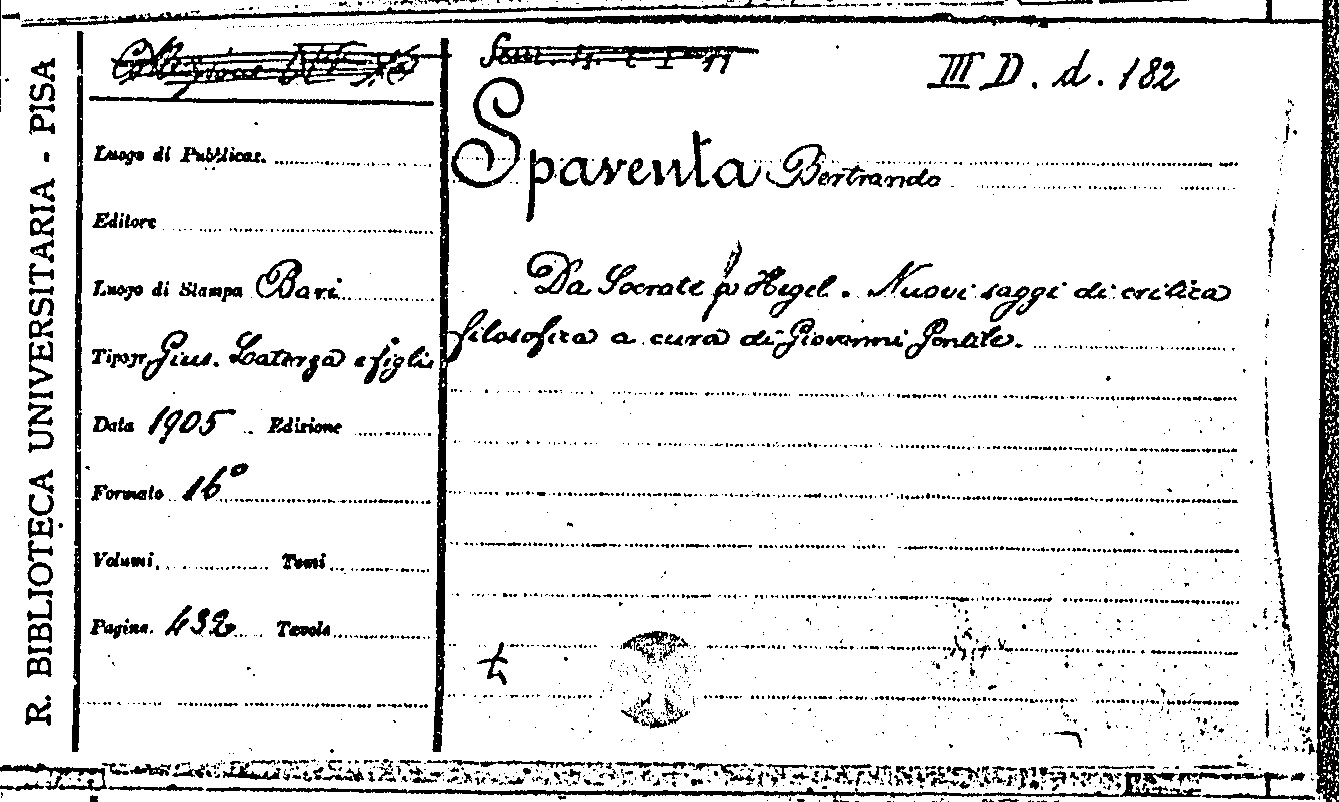 R. BIBLIOTECA UNIVERSITARIA - PISA
Collezione
III D. d. 182
Luogo di Pubblicaz.
Spaventa Bertrando
Editore
Luogo di Stampa Bari
Da Socrate a Hegel. Nuovi saggi di critica
filosofica a cura di Giovanni Gentile.
Tipogr. Gius. Laterza e figli
Data 1905 Edizione
Formato 16°
Volumi Tomi
Pagine 432 Tavole